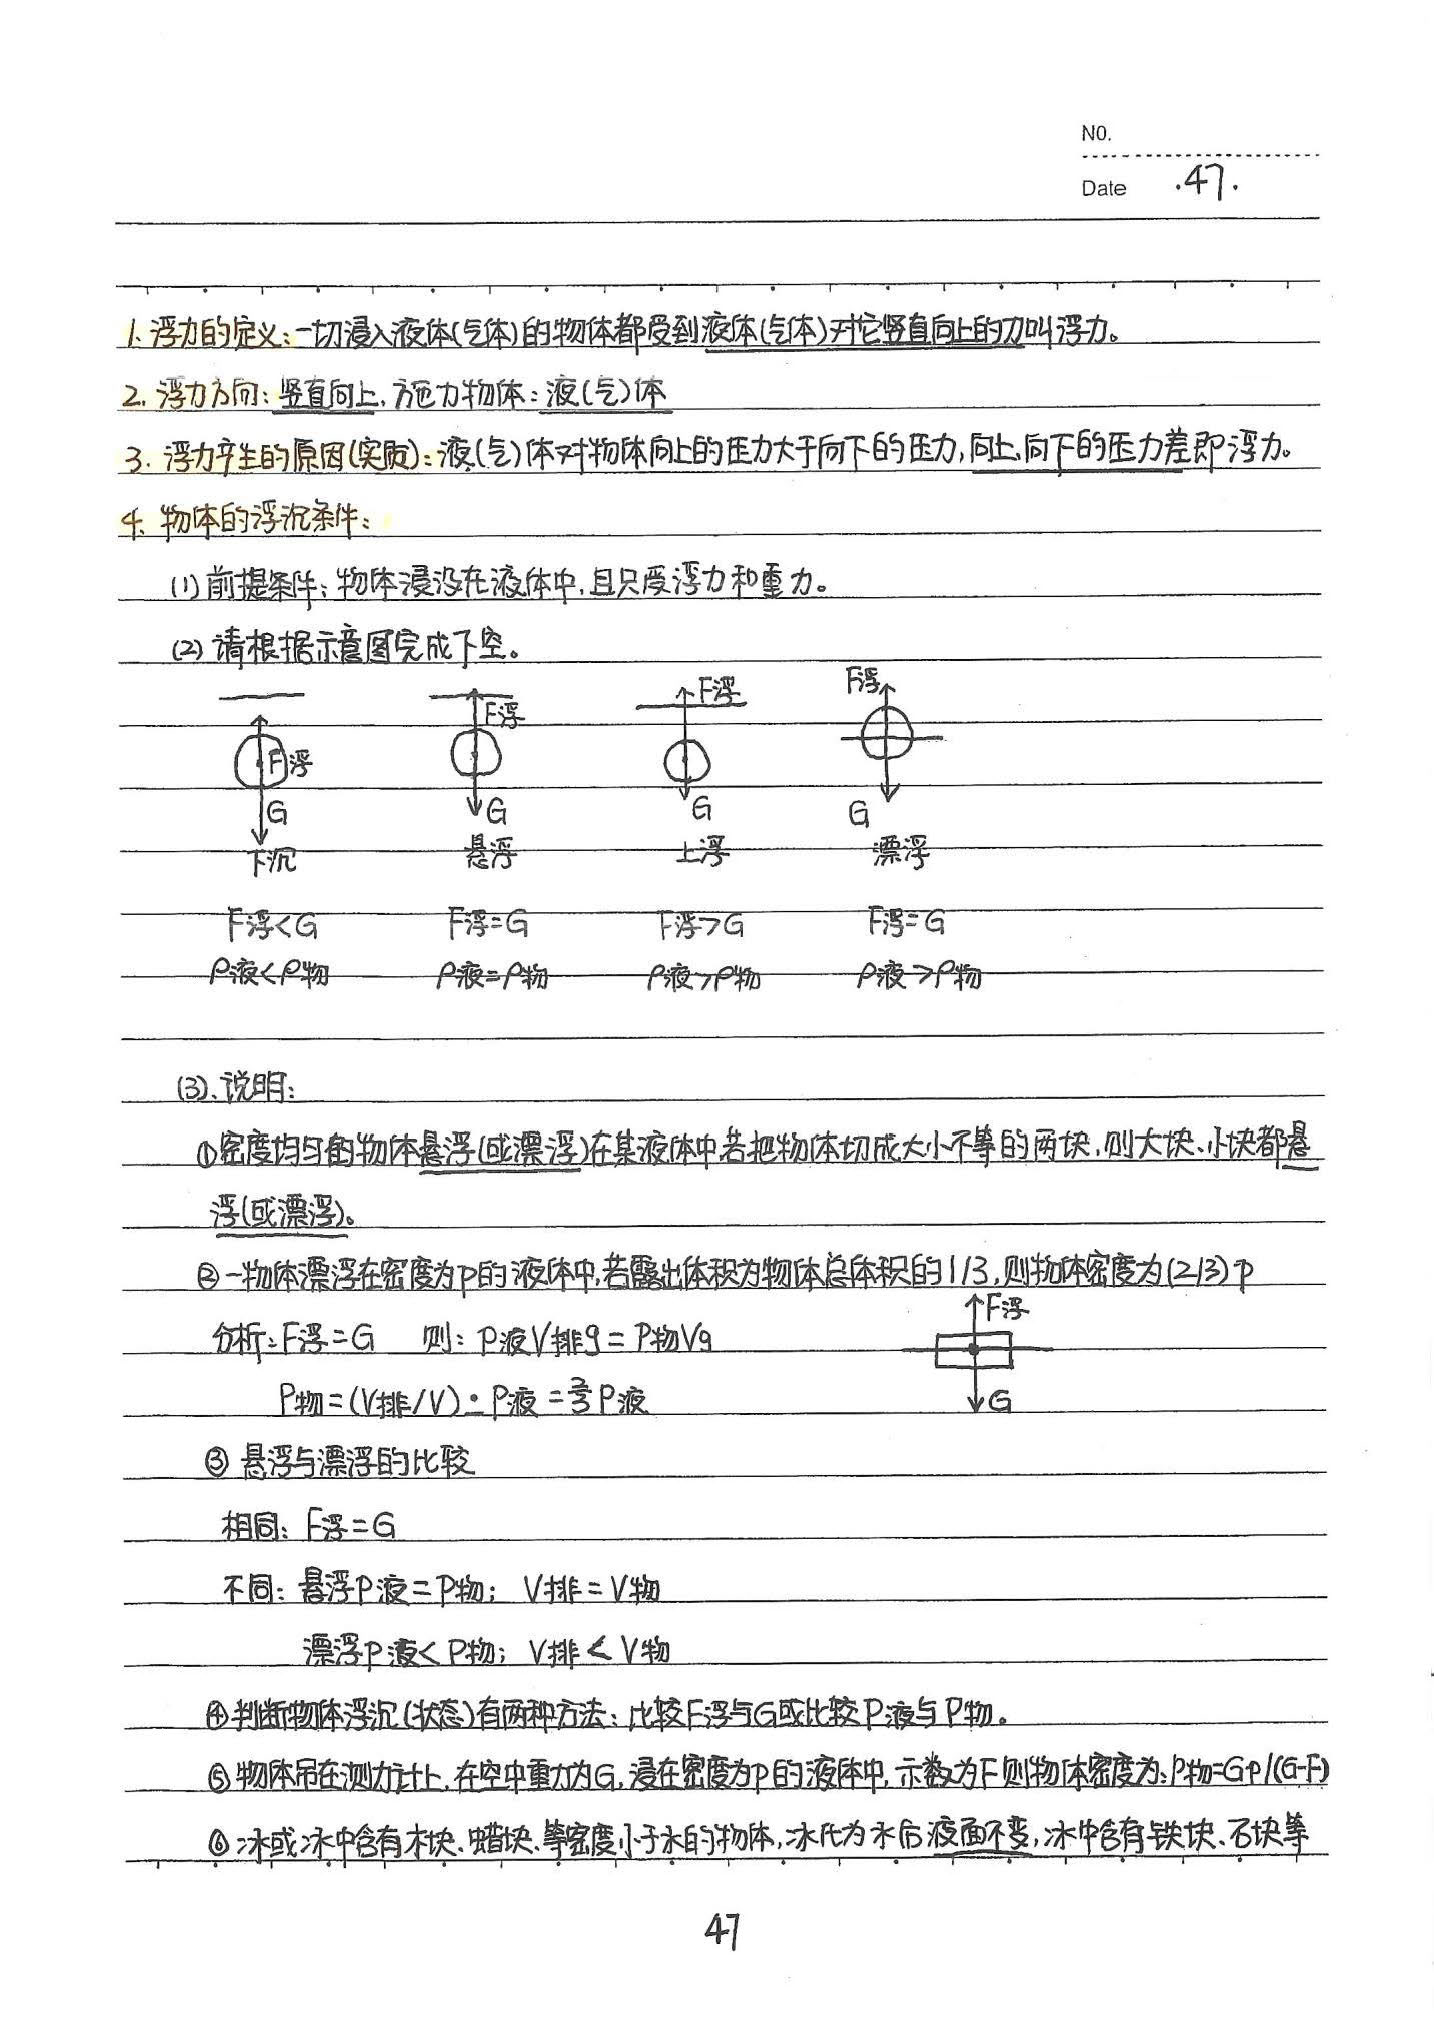 NO.
Date .47.
1. 浮力的定义：一切浸入液体(气体)的物体都受到液体(气体)对它竖直向上的力叫浮力。
2. 浮力方向：竖直向上，施力物体：液(气)体
3. 浮力产生的原因(实质)：液(气)体对物体向上的压力大于向下的压力，向上、向下的压力差即浮力。
4. 物体的浮沉条件：
(1) 前提条件：物体浸没在液体中，且只受浮力和重力。
(2) 请根据示意图完成下空。
F浮 F浮 F浮 F浮
G G G G
下沉 悬浮 上浮 漂浮
F浮<G F浮=G F浮>G F浮=G
ρ液<ρ物 ρ液=ρ物 ρ液>ρ物 ρ液>ρ物
(3)、说明：
①密度均匀的物体悬浮(或漂浮)在某液体中若把物体切成大小不等的两块，则大块、小块都悬
浮(或漂浮)。
②一物体漂浮在密度为p的液体中，若露出体积为物体总体积的1/3，则物体密度为(2/3)p
F浮
分析：F浮=G 则：P液V排g=P物Vg
P物=(V排/V)·P液=⅔P液
G
③悬浮与漂浮的比较
相同：F浮=G
不同：悬浮P液=P物；V排=V物
漂浮P液<P物；V排<V物
④判断物体浮沉(状态)有两种方法：比较F浮与G或比较P液与P物。
⑤物体吊在测力计上，在空中重力为G，浸在密度为p的液体中，示数为F则物体密度为：P物=Gp/(G-F)
⑥冰或冰中含有木块、蜡块、等密度小于水的物体，冰化为水后液面不变，冰中含有铁块、石块等
47